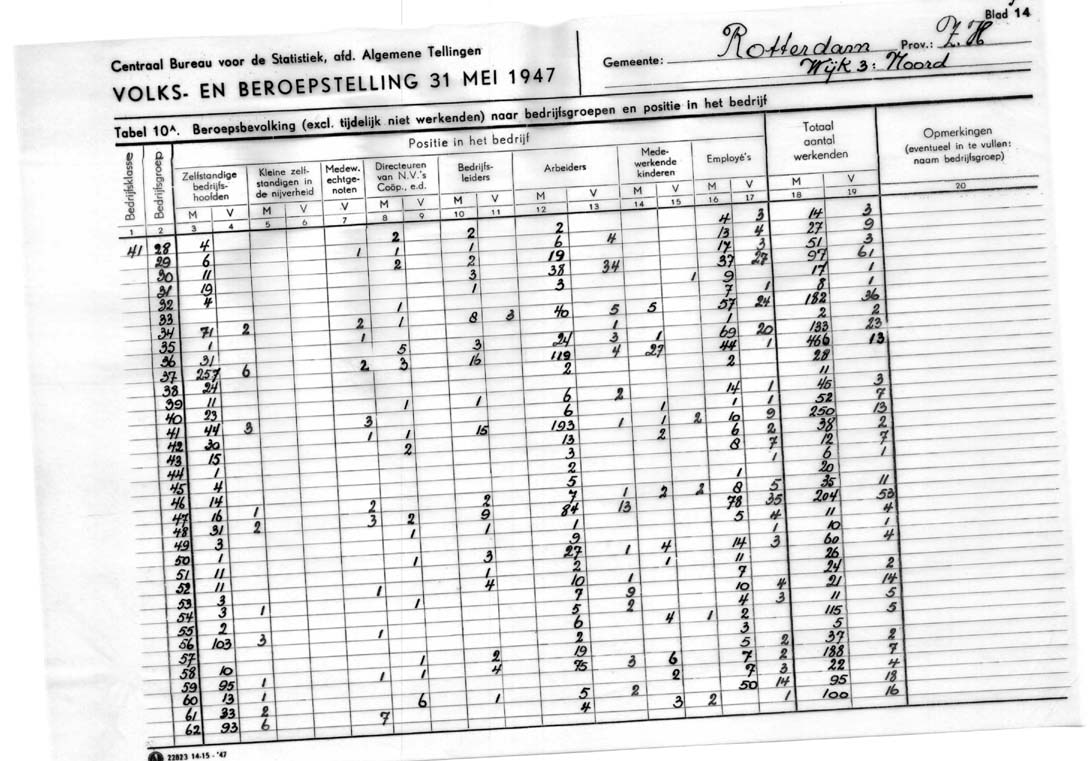 Blad 14
Centraal Bureau voor de Statistiek, afd. Algemene Tellingen
VOLKS- EN BEROEPSTELLING 31 MEI 1947
Gemeente: Rotterdam Prov.: Z.H
Wijk 3: Noord
Tabel 10A. Beroepsbevolking (excl. tijdelijk niet werkenden) naar bedrijfsgroepen en positie in het bedrijf
Bedrijfsklasse
Bedrijfsgroep
Positie in het bedrijf
Zelfstandige bedrijfshoofden
Kleine zelfstandigen in de nijverheid
Medew. echtgenoten
Directeuren van N.V.'s Coöp., e.d.
Bedrijfsleiders
Arbeiders
Medewerkende kinderen
Employé's
Totaal aantal werkenden
Opmerkingen (eventueel in te vullen: naam bedrijfsgroep)
M V M V V M V M V M V M V M V M V
1 2 3 4 5 6 7 8 9 10 11 12 13 14 15 16 17 18 19 20
41 28 4 2 2 2 4 3 14 3
29 6 1 1 1 6 4 13 4 27 9
30 11 2 2 19 17 3 51 3
31 19 3 38 34 37 27 97 61
32 4 1 3 1 9 17 1
33 1 7 1 8 1
34 71 2 2 1 8 3 40 5 5 57 24 182 36
35 1 1 1 1 2 2
36 31 5 3 24 3 1 69 20 133 23
37 257 6 2 3 16 119 4 27 44 1 466 13
38 24 2 2 28
39 11 11
40 23 1 1 6 2 14 1 45 3
41 44 3 3 6 1 1 1 52 7
42 30 1 1 15 193 1 1 2 10 9 250 13
43 15 2 13 2 6 2 38 2
44 1 3 8 7 12 7
45 4 2 1 6 1
46 14 5 1 20
47 16 1 2 2 7 1 2 2 8 5 35 11
48 31 2 3 2 9 84 13 78 35 204 53
49 3 1 1 1 5 4 11 4
50 1 9 1 10 1
51 11 1 3 27 1 4 14 3 60 4
52 11 1 2 1 11 26
53 3 1 4 10 1 7 24 2
54 3 1 1 7 9 10 4 21 14
55 2 5 2 4 3 11 5
56 103 3 1 6 4 1 2 115 5
57 2 3 5
58 10 1 2 19 5 2 37 2
59 95 1 1 1 4 75 3 6 7 2 188 7
60 13 1 2 7 3 22 4
61 33 2 6 1 5 2 50 14 95 18
62 93 6 7 4 3 2 1 100 16
22823 14-15 - '47